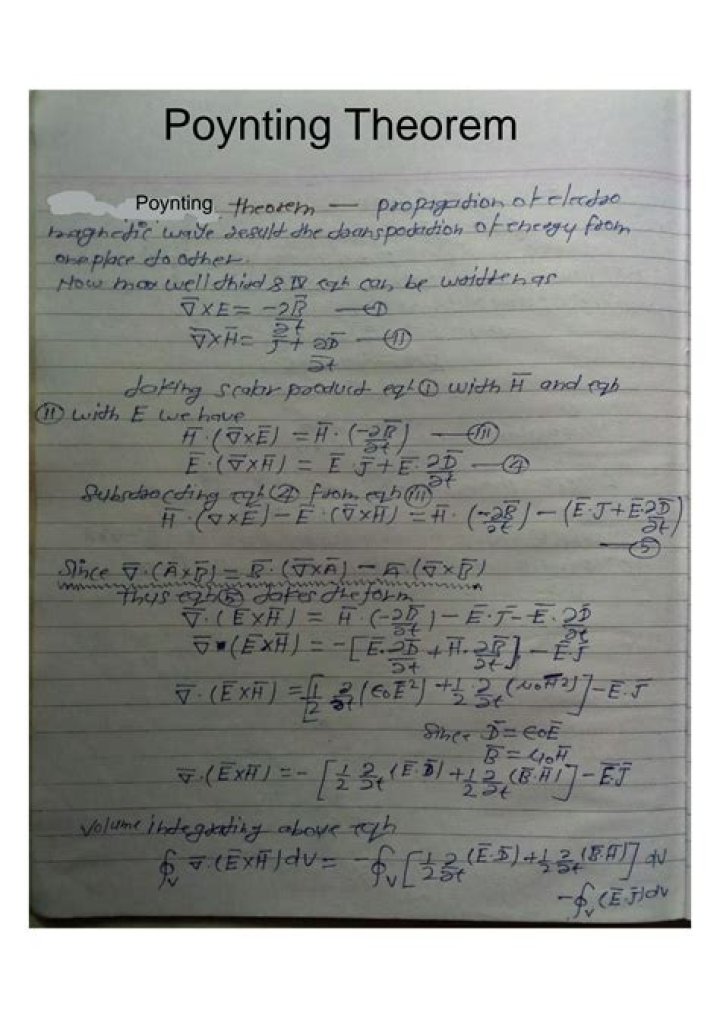 Poynting Theorem
Poynting theorem — propagation of electro
magnetic wave result the transpotation of energy from
one place to other.
Now max well third & IV eqn can be written as
∇̅×E = -∂B̅/∂t —(I)
∇̅×H̅ = J̅ + ∂D̅/∂t —(II)
taking scalar product eqn (1) with H̅ and eqn
(II) with E we have
H̅·(∇̅×E̅) = H̅·(-∂B̅/∂t) —(III)
E̅·(∇̅×H̅) = E̅·J̅ + E̅·∂D̅/∂t —(4)
Substracting eqn (4) from eqn (III)
H̅·(∇×E̅) - E̅·(∇×H̅) = H̅·(-∂B̅/∂t) - (E̅·J + E̅·∂D̅/∂t)
—(5)
Since ∇̅·(A̅×B̅) = B̅·(∇̅×A̅) - A̅·(∇̅×B̅)
Thus eqn (5) takes the form
∇̅·(E̅×H̅) = H̅·(-∂B̅/∂t) - E̅·J̅ - E̅·∂D̅/∂t
∇̅·(E̅×H̅) = -[E̅·∂D̅/∂t + H̅·∂B̅/∂t] - E̅·J̅
∇̅·(E̅×H̅) = [1/2 ∂/∂t (ϵ0E̅²) + 1/2 ∂/∂t (μ0H̅²)] - E̅·J̅
Since D̅ = ϵ0E̅
B̅ = μ0H̅
∇̅·(E̅×H̅) = -[1/2 ∂/∂t (E̅·D̅) + 1/2 ∂/∂t (B̅·H̅)] - E̅·J̅
Volume integrating above eqn
∮v ∇̅·(E̅×H̅)dv = -∮v [1/2 ∂/∂t (E̅·D̅) + 1/2 ∂/∂t (B̅·H̅)] dv
-∮v (E̅·J̅)dv